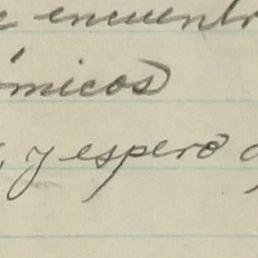 e encuentr
ómicos
, y espero q